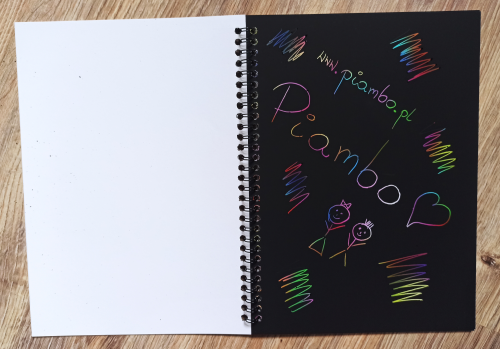 www.piambo.pl
Piambo